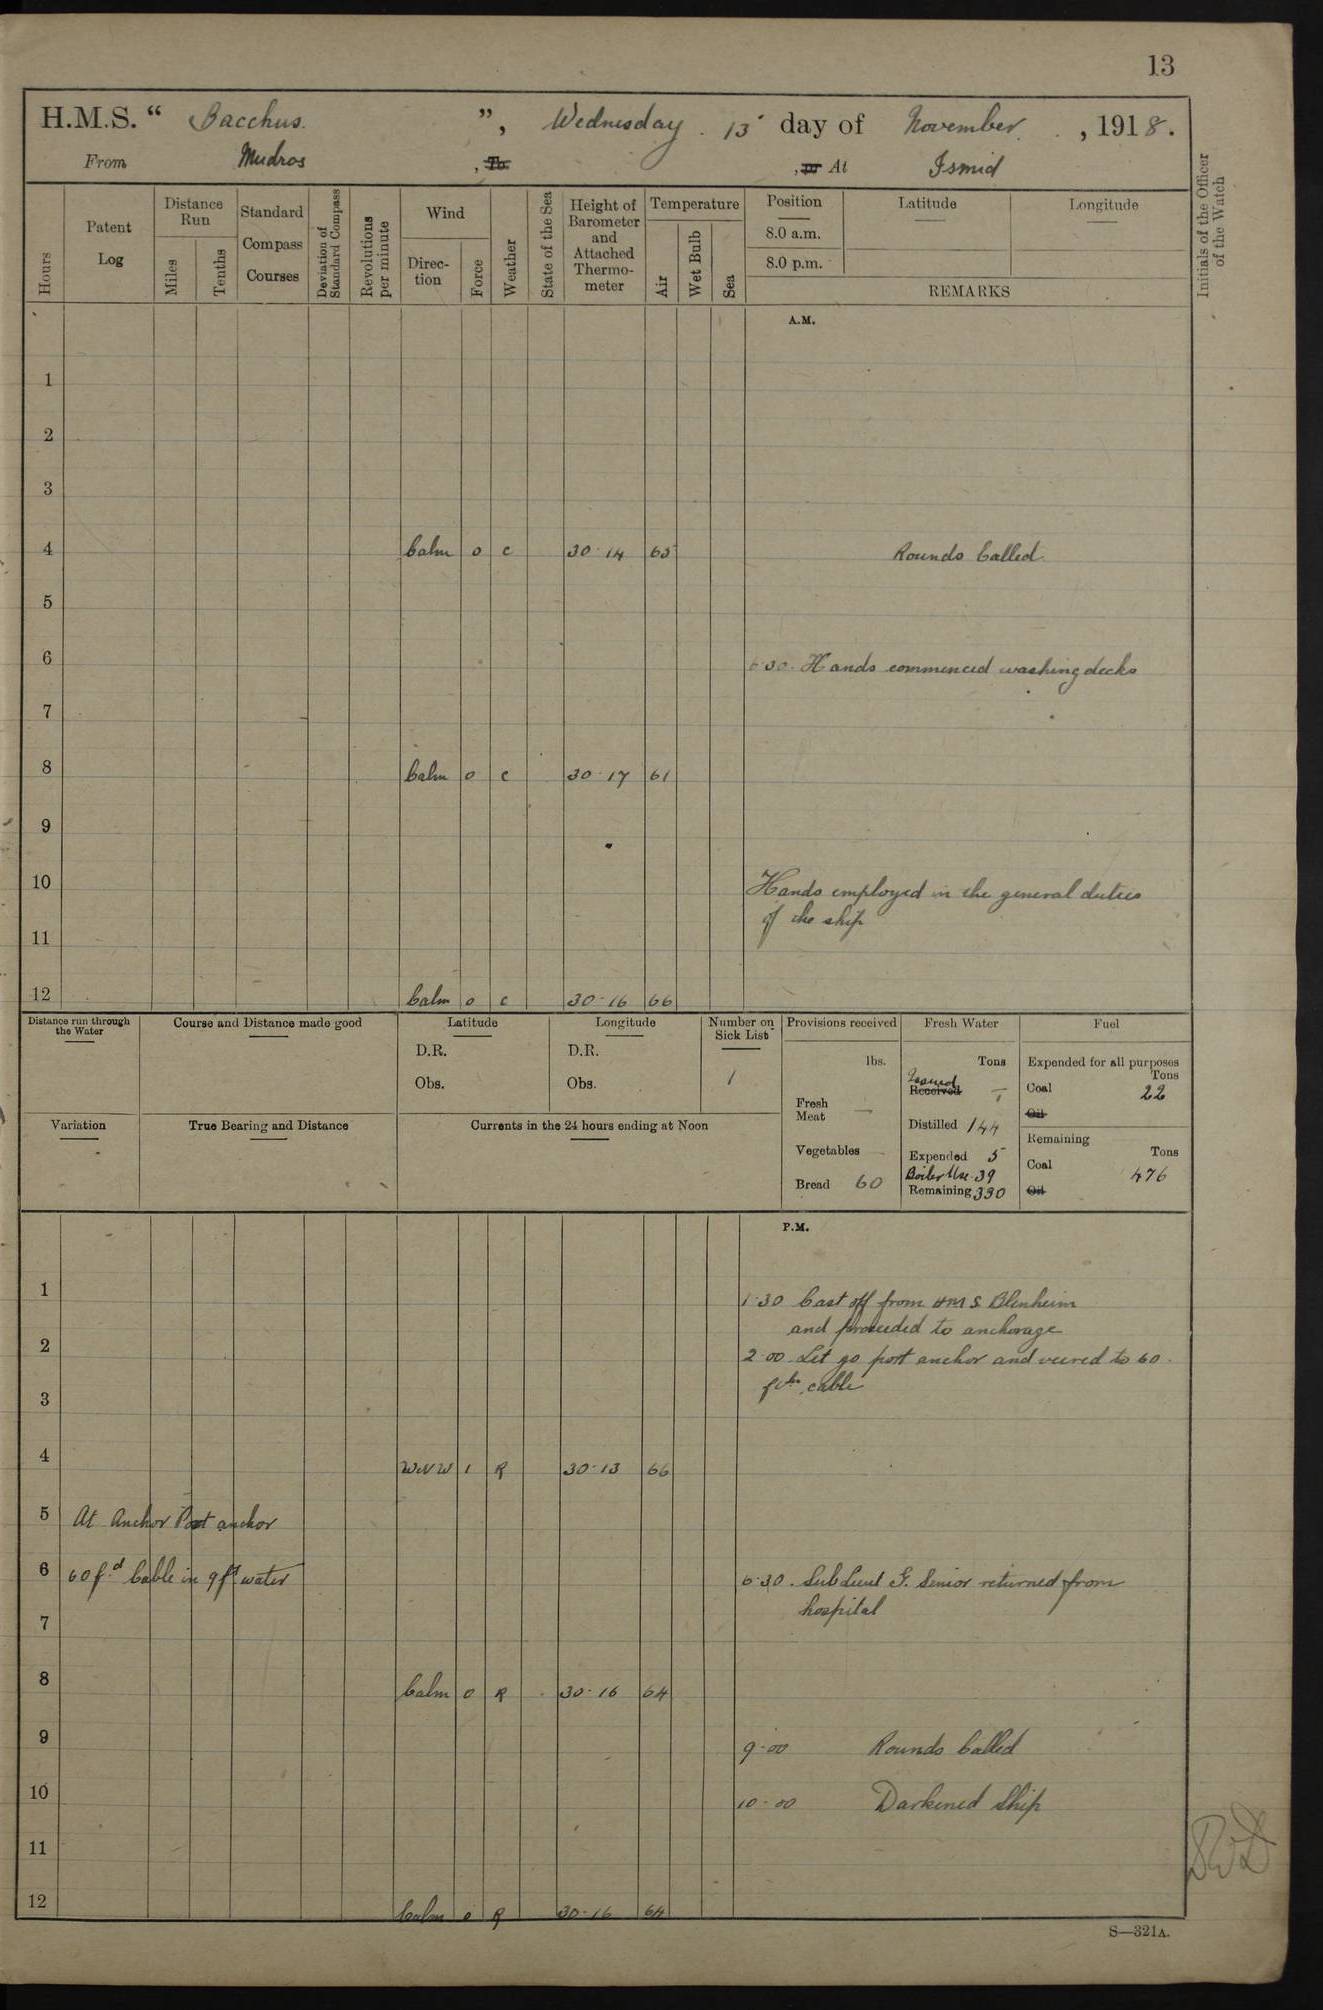 13
H.M.S. “ Bacchus. ”, Wednesday. 13 day of November, 1918.
From Mudros, To, or At Ismid
Hours
Patent Log
Distance Run
Miles
Tenths
Standard Compass Courses
Deviation of Standard Compass
Revolutions per minute
Wind
Direction
Force
Weather
State of the Sea
Height of Barometer and Attached Thermometer
Temperature
Air
Wet Bulb
Sea
Position Latitude Longitude
8.0 a.m.
8.0 p.m.
REMARKS
Initials of the Officer of the Watch
A.M.
1
2
3
4 Calm 0 c 30·14 65 Rounds Called.
5
6 6·30. Hands commenced washing decks
7
8 Calm 0 c 30·17 61
9
10 Hands employed in the general duties
of the ship
11
12 Calm 0 c 30·16 66
Distance run through the Water
Course and Distance made good
Latitude
D.R.
Obs.
Longitude
D.R.
Obs.
Number on Sick List
1
Variation
True Bearing and Distance
Currents in the 24 hours ending at Noon
Provisions received
lbs.
Fresh Meat —
Vegetables —
Bread 60
Fresh Water
Tons
Issued
Received
Distilled 144
Expended 5
Boiler Use 39
Remaining 390
Fuel
Expended for all purposes
Tons
Coal 22
Oil
Remaining
Tons
Coal 476
Oil
P.M.
1 1·30 Cast off from HMS Blenheim
and proceeded to anchorage
2 2·00 Let go port anchor and veered to 60
fths. cable
3
4 WNW 1 R 30·13 66
5 At Anchor Port anchor
6 60 f.d Cable in 9 fd water 6·30. Sub Lieut G. Senior returned from
hospital
7
8 Calm 0 R 30·16 64
9 9·00 Rounds Called
10 10·00 Darkened Ship
11
12 Calm 0 R 30·16 64
S—321A.